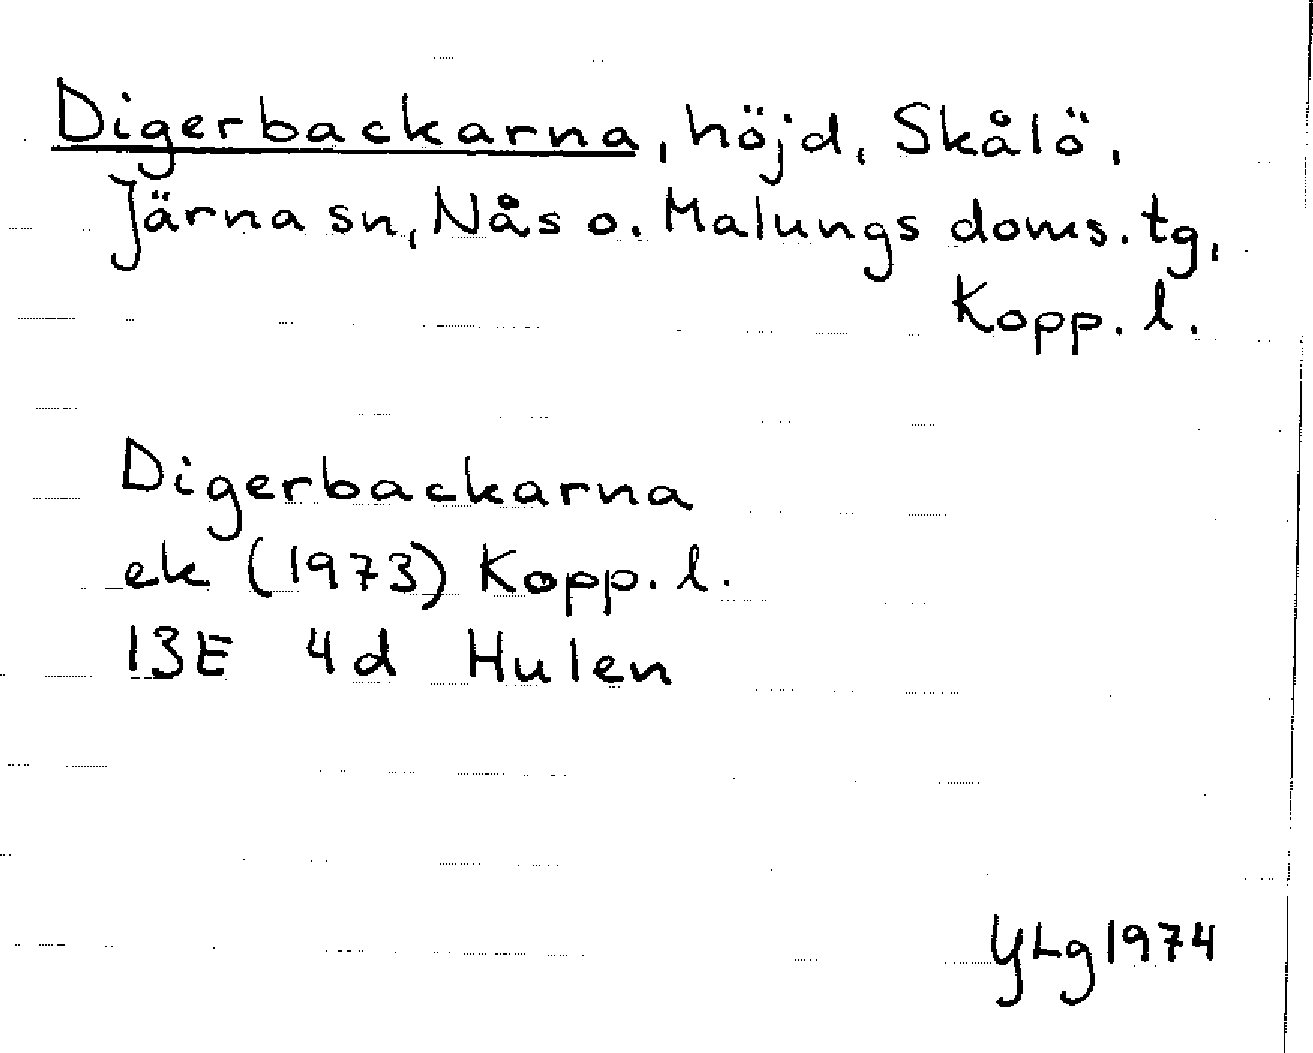 Digerbackarna, höjd, Skålö,
Järna sn, Nås o. Malungs doms. tg,
Kopp. l.
Digerbackarna
ek (1973) Kopp. l.
13E 4d Hulen
YLg 1974